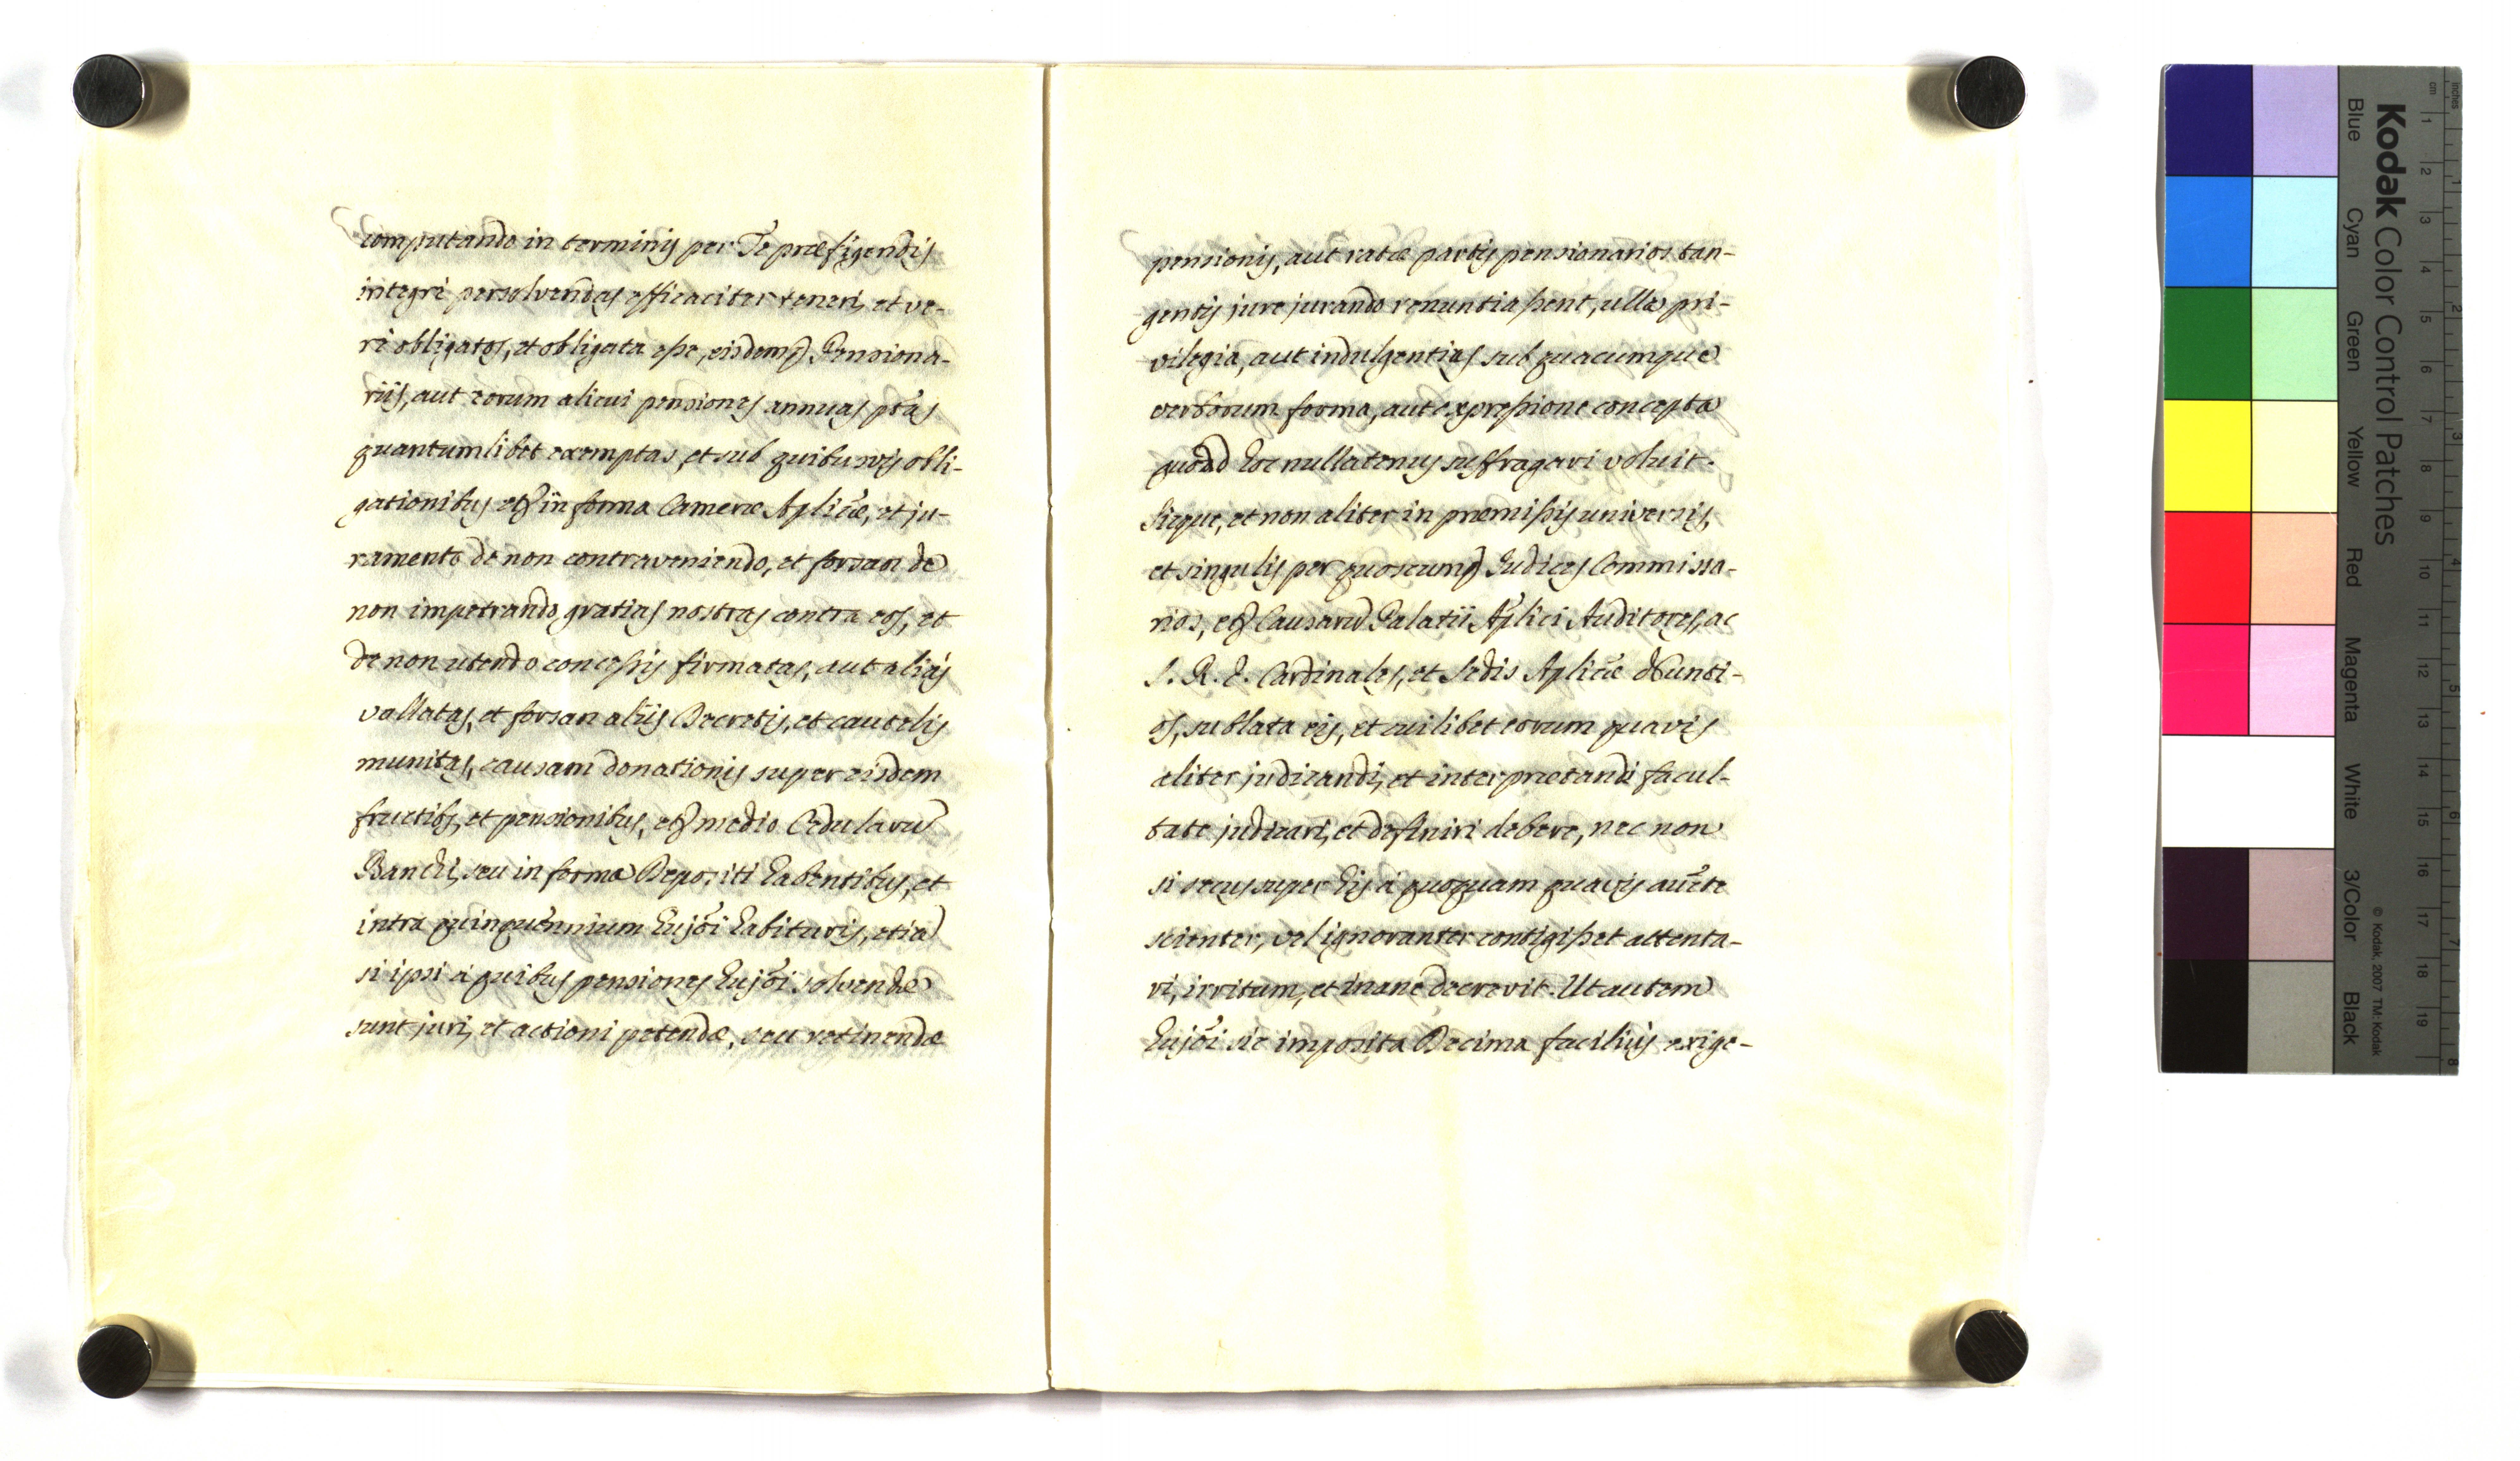 computando in terminis per Te præfigendis
integrè persolvendas efficaciter teneri, et ve-
rè obligatos, et obligata esse, eisdemq Pensiona-
riis, aut eorum alicui pensiones annuas ptas
quantumlibet exemptas, et sub quibusvis obli-
gationibus, et in forma Cameræ Aplicæ, et ju-
ramento de non contraveniendo, et forsan de
non impetrando, gratias nostras contra eos, et
de non utendo concessis firmatas, aut aliàs
vallatas, et forsan aliis Decretis, et cautelis
munitas, causam donationis super eisdem
fructibs, et pensionibus, et medio Cedularū
Banchi, seu in forma Depositi habentibus, et
intra quinquennium hujõi habituris, etiā
si ipsi à quibus pensiones hujõi solvendæ
sunt juri, et actioni petendæ, seu retinendæ
pensionis, aut ratæ partis pensionarios tan-
gentis jure jurando renuntiassent, ulla pri-
vilegia, aut indulgentias sub quacumque
verborum forma, aut expressione concepta
quoad hoc nullatenus suffragari voluit.
Sicque, et non aliter in præmissis universis,
et singulis per quoscumq Judices Commissa-
rios, et Causarū Palatii Aplici Auditores, ac
S. R. E. Cardinales, et Sedis Aplicæ Nunti-
os, sublata eis, et cuilibet eorum quavis
aliter judicandi, et interpretandi facul-
tate judicari, et definiri debere, nec non
si secus super his à quoquam quavis aucte
scienter, vel ignoranter contigisset attenta-
ri, irritum, et inane decrevit. Ut autem
hujõi sic imposita Decima faciliùs exige-
Kodak Color Control Patches
Blue Cyan Green Yellow Red Magenta White 3/Color Black
© Kodak, 2007 TM: Kodak
cm 1 2 3 4 5 6 7 8 9 10 11 12 13 14 15 16 17 18 19
inches 1 2 3 4 5 6 7 8